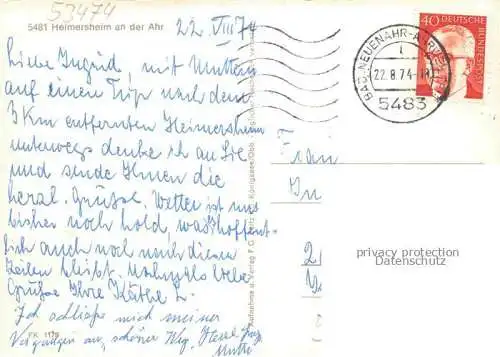 53474
5481 Heimersheim an der Ahr
22. VIII 74
Liebe Ingrid, mit Muttern
auf einen Trip nach dem
3 Km entfernten Heimersheim
unterwegs denke ich an Sie
und sende Ihnen die
herzl. Grüsse. Wetter ist uns
bisher noch hold, was hoffent-
lich auch noch nach diesen
Zeilen bleibt. Nochmals liebe
Grüsse Ihre Käthe L.
Ich schließe mich meiner
an, schöner Weg,
Mutti
FK 1179
BAD NEUENAHR-AHRW
22.8.74
5483
40
DEUTSCHE
BUNDESPOST
Frau
privacy protection
Datenschutz